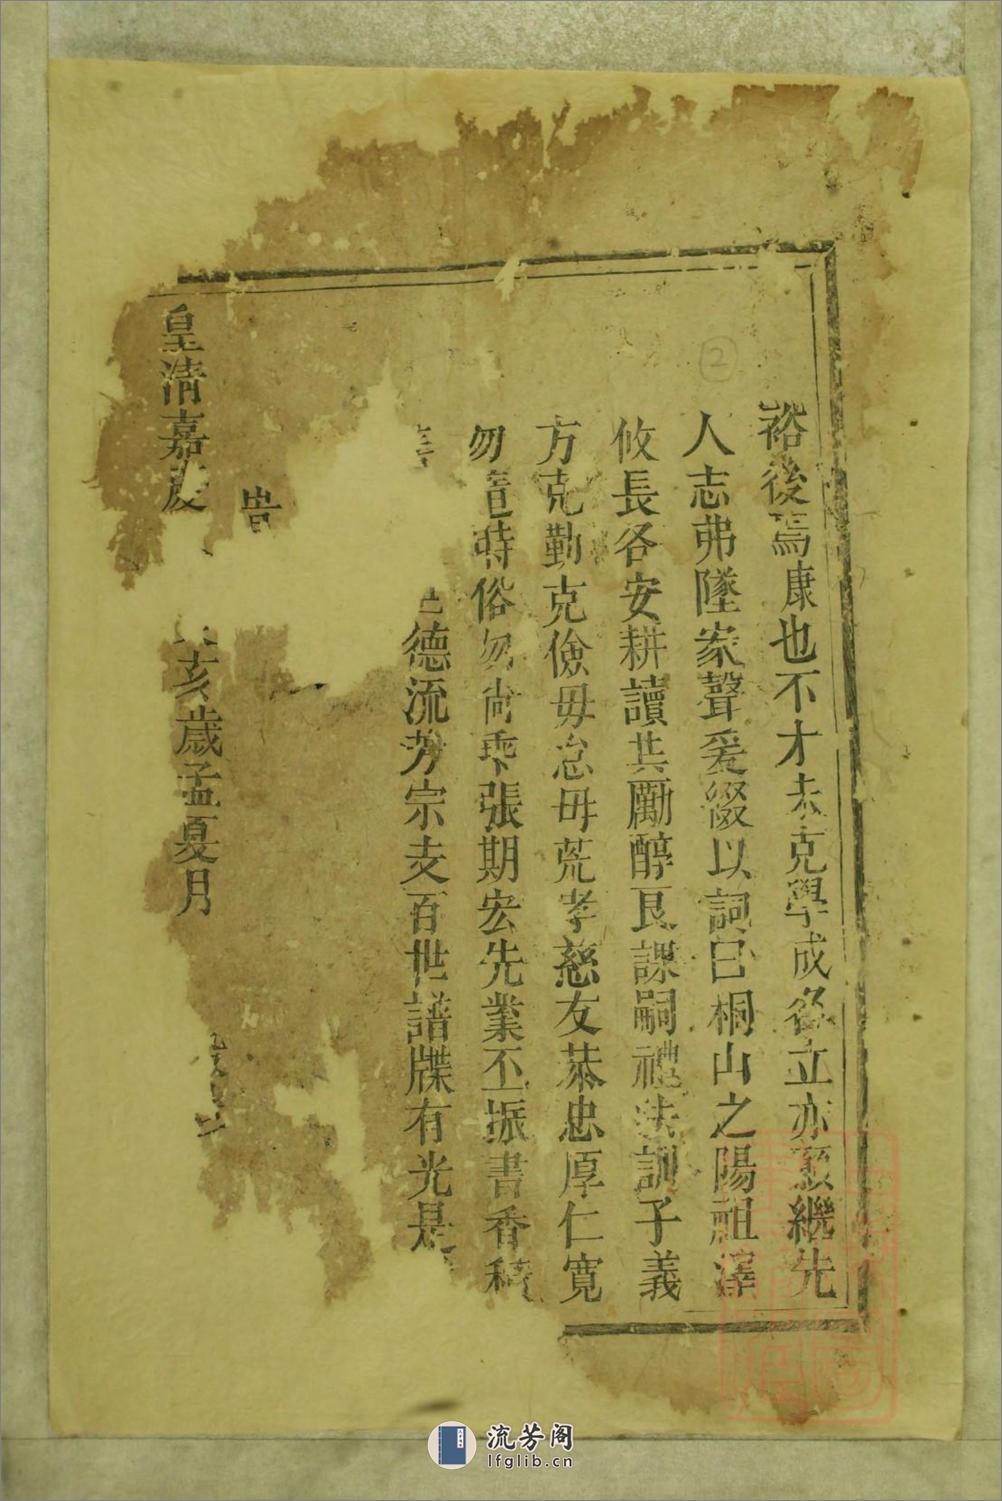 裕後焉康也不才未克學成名立亦願繼先
人志弗墜家聲爰綴以詞曰桐山之陽祖澤
攸長各安耕讀共勵醇良謀嗣禮法訓子義
方克勤克儉毋怠毋荒孝慈友恭忠厚仁寬
勿 時俗勿尚乖張期宏先業丕振書香
德流芳宗支百世譜牒有光是
皇清嘉慶 亥歲孟夏月
2
流芳阁
lfglib.cn